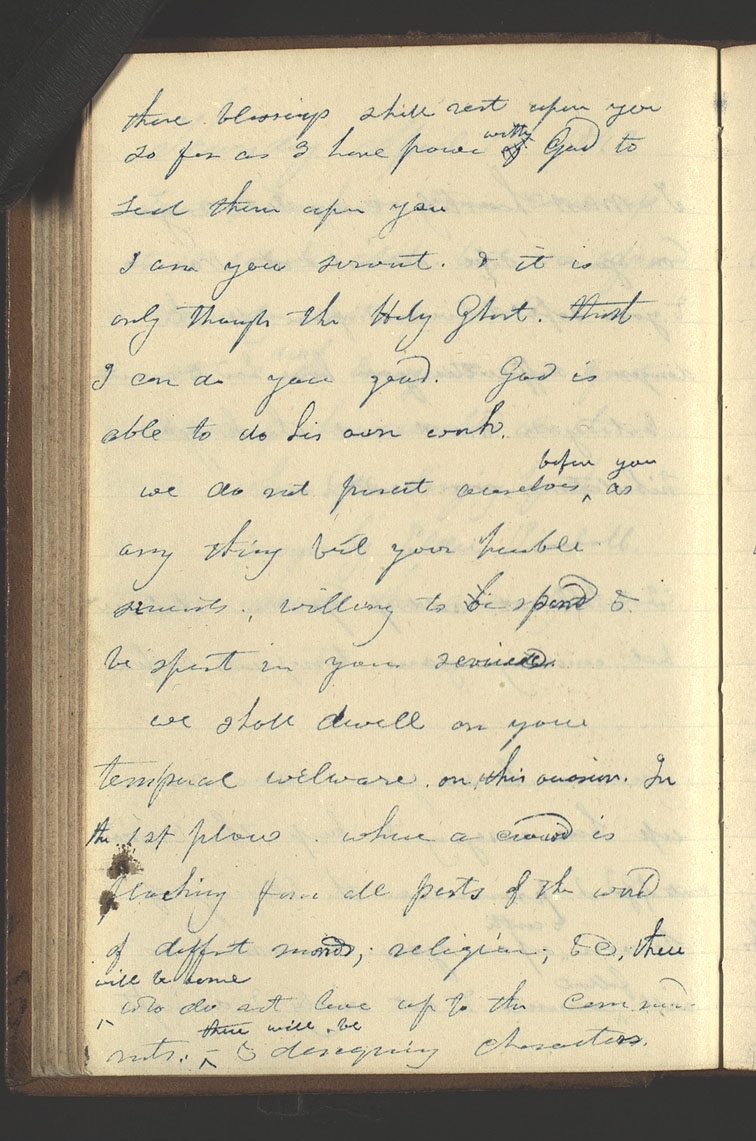 these blessings shall rest upon you
so far as I have power with of God to
seal them upon you
I am your servent. & it is
only through the Holy Ghost. that
I can do you good. God is
able to do his own work.
before you
we do not present ourselves ^ as
any thing but your humble
servants, willing to be spend &
be spent in your service
we shall dwell on your
temporal welware. on this occasion. In
the 1st place. where a crowd is
flocking from all parts of the world
of different minds, religion, &c, there
will be some
^ who do not live up to the command-
there will be
ments. ^ & designing characters.